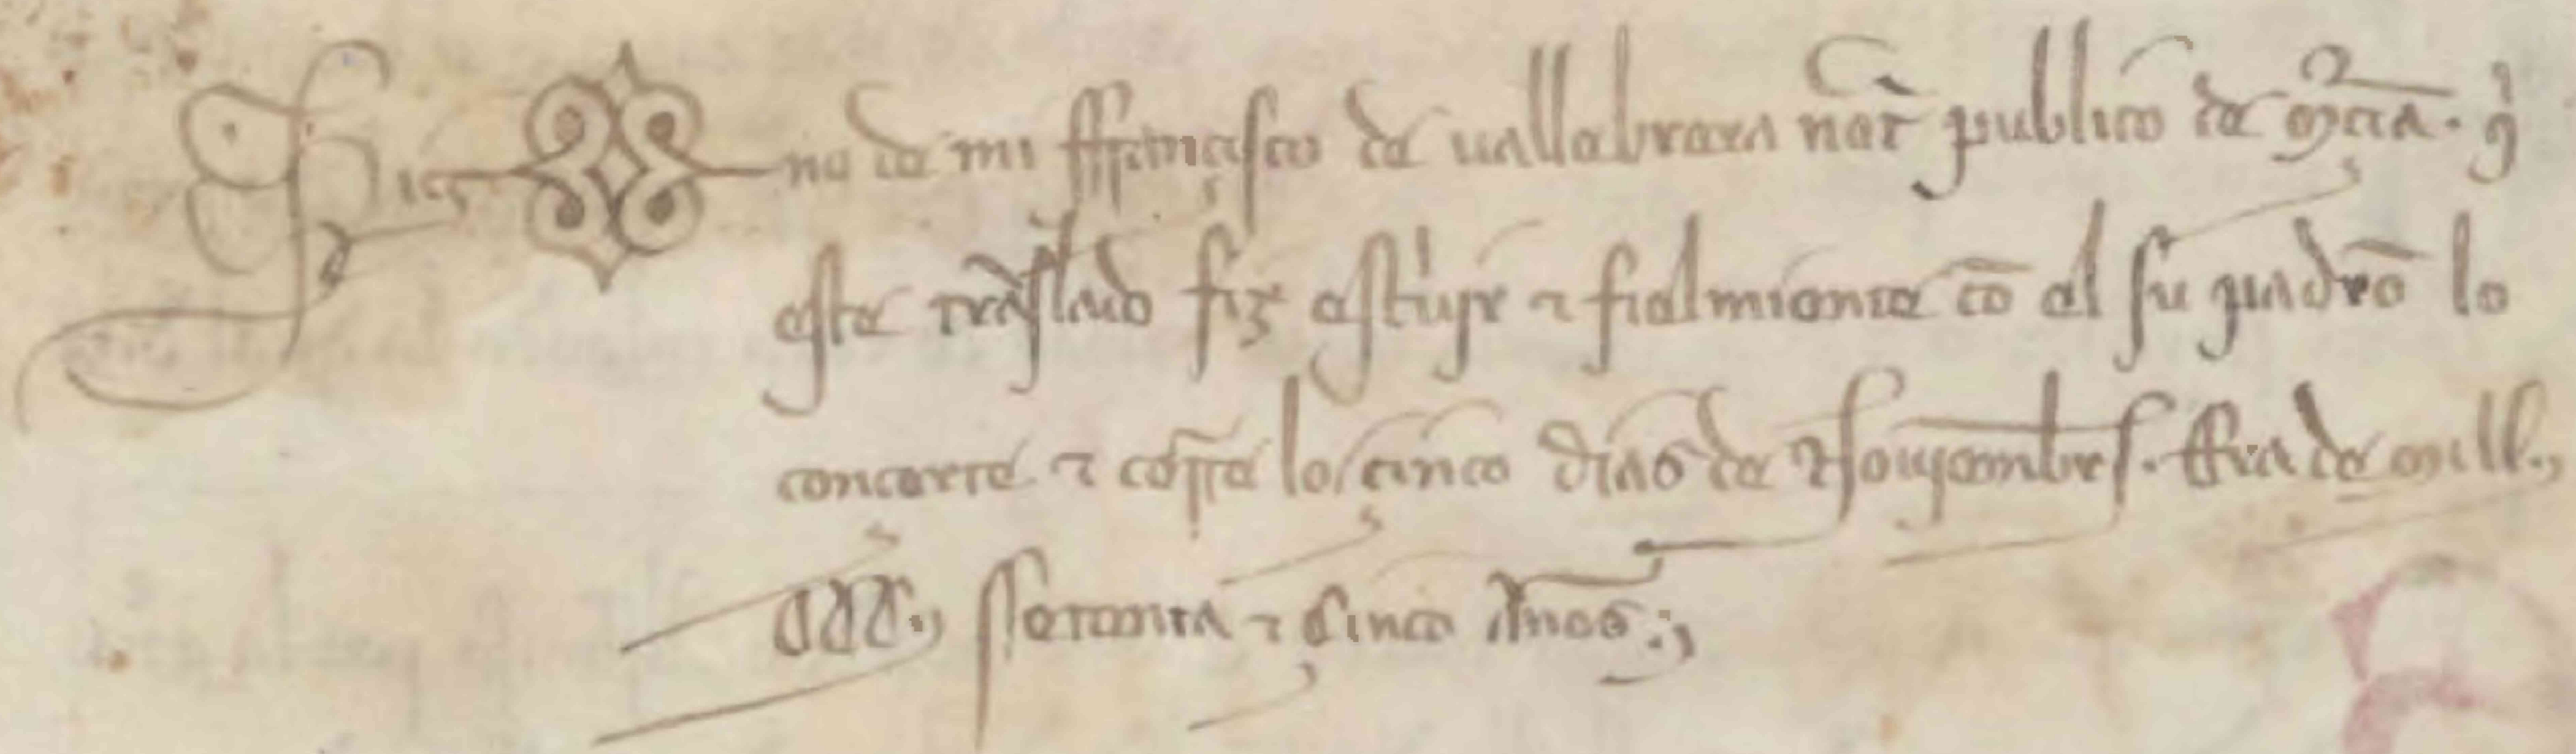 Sig no de mi ffrançisco de uallebrera not publico de Mçia. q
este traslado fiz escriuyr τ fielmiente cō el su padrō lo
concerte τ cōprē los cinco dias de Nouyembres. Era de mill.,
CCC., Setenta τ Cinco Annos.,